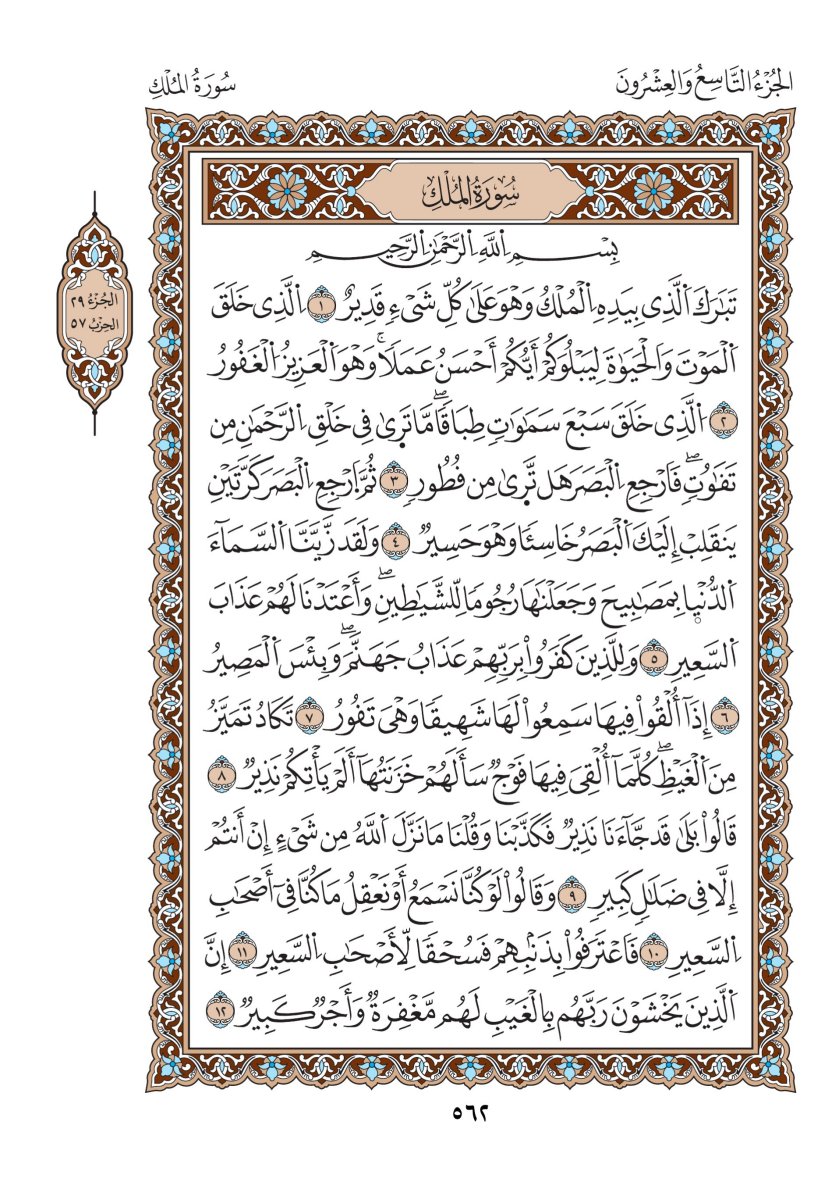 الجُزْءُ التَّاسِعُ وَالعِشْرُونَ
سُورَةُ المُلْكِ
سُورَةُ المُلْكِ
بِسْمِ اِللَّهِ اِلرَّحْمَٰنِ اِلرَّحِيمِ
تَبَٰرَكَ اَلَّذِى بِيَدِهِ اِلْمُلْكُ وَهْوَ عَلَىٰ كُلِّ شَىْءٖ قَدِيرٌ ١ اِلَّذِى خَلَقَ
اَلْمَوْتَ وَالْحَيَوٰةَ لِيَبْلُوَكُمْ أَيُّكُمْ أَحْسَنُ عَمَلًاۚ وَهْوَ اَلْعَزِيزُ اُلْغَفُورُ
٢ اِلَّذِى خَلَقَ سَبْعَ سَمَٰوَٰتٖ طِبَاقًاۖ مَّا تَرٜىٰ فِى خَلْقِ اِلرَّحْمَٰنِ مِن
تَفَٰوُتٖۖ فَارْجِعِ اِلْبَصَرَ هَل تَّرٜىٰ مِن فُطُورٖ ٣ ثُمَّ اَرْجِعِ اِلْبَصَرَ كَرَّتَيْنِ
يَنقَلِبْ إِلَيْكَ اَلْبَصَرُ خَاسِئًا وَهْوَ حَسِيرٌ ٤ وَلَقَد زَّيَّنَّا اَلسَّمَآءَ
اَلدُّنْيٜا بِمَصَٰبِيحَ وَجَعَلْنَٰهَا رُجُومًا لِّلشَّيَٰطِينِۖ وَأَعْتَدْنَا لَهُمْ عَذَابَ
اَلسَّعِيرِ ٥ وَلِلَّذِينَ كَفَرُواْ بِرَبِّهِمْ عَذَابُ جَهَنَّمَۖ وَبِئْسَ اَلْمَصِيرُ
٦ إِذَآ أُلْقُواْ فِيهَا سَمِعُواْ لَهَا شَهِيقًا وَهْىَ تَفُورُ ٧ تَكَادُ تَمَيَّزُ
مِنَ اَلْغَيْظِۖ كُلَّمَآ أُلْقِىَ فِيهَا فَوْجٌ سَأَلَهُمْ خَزَنَتُهَآ أَلَمْ يَأْتِكُمْ نَذِيرٌ ٨
قَالُواْ بَلَىٰ قَد جَّآءَنَا نَذِيرٌ فَكَذَّبْنَا وَقُلْنَا مَا نَزَّلَ اَللَّهُ مِن شَىْءٍ إِنْ أَنتُمْ
إِلَّا فِى ضَلَٰلٖ كَبِيرٖ ٩ وَقَالُواْ لَوْ كُنَّا نَسْمَعُ أَوْ نَعْقِلُ مَا كُنَّا فِىٓ أَصْحَٰبِ
اِلسَّعِيرِ ١٠ فَاعْتَرَفُواْ بِذَنۢبِهِمْ فَسُحْقًا لِّأَصْحَٰبِ اِلسَّعِيرِ ١١ إِنَّ
اَلَّذِينَ يَخْشَوْنَ رَبَّهُم بِالْغَيْبِ لَهُم مَّغْفِرَةٌ وَأَجْرٌ كَبِيرٌ ١٢
الجُزْءُ ٢٩
الحِزْبُ ٥٧
٥٦٢